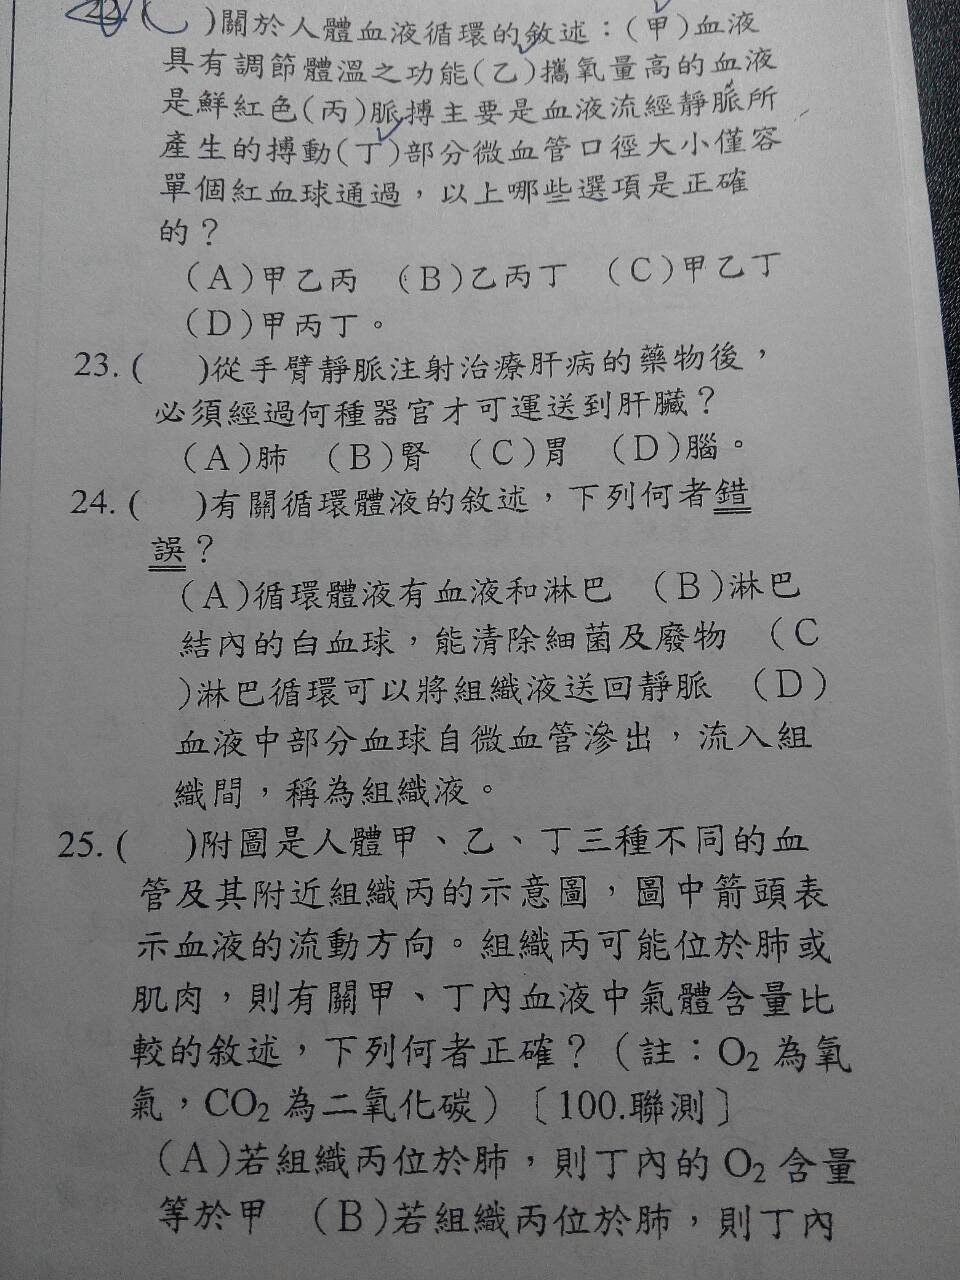 22.( )關於人體血液循環的敘述：(甲)血液
具有調節體溫之功能(乙)攜氧量高的血液
是鮮紅色(丙)脈搏主要是血液流經靜脈所
產生的搏動(丁)部分微血管口徑大小僅容
單個紅血球通過，以上哪些選項是正確
的？
(A)甲乙丙 (B)乙丙丁 (C)甲乙丁
(D)甲丙丁。
23.( )從手臂靜脈注射治療肝病的藥物後，
必須經過何種器官才可運送到肝臟？
(A)肺 (B)腎 (C)胃 (D)腦。
24.( )有關循環體液的敘述，下列何者錯
誤？
(A)循環體液有血液和淋巴 (B)淋巴
結內的白血球，能清除細菌及廢物 (C
)淋巴循環可以將組織液送回靜脈 (D)
血液中部分血球自微血管滲出，流入組
織間，稱為組織液。
25.( )附圖是人體甲、乙、丁三種不同的血
管及其附近組織丙的示意圖，圖中箭頭表
示血液的流動方向。組織丙可能位於肺或
肌肉，則有關甲、丁內血液中氣體含量比
較的敘述，下列何者正確？（註：O₂為氧
氣，CO₂為二氧化碳）〔100.聯測〕
(A)若組織丙位於肺，則丁內的O₂含量
等於甲 (B)若組織丙位於肺，則丁內